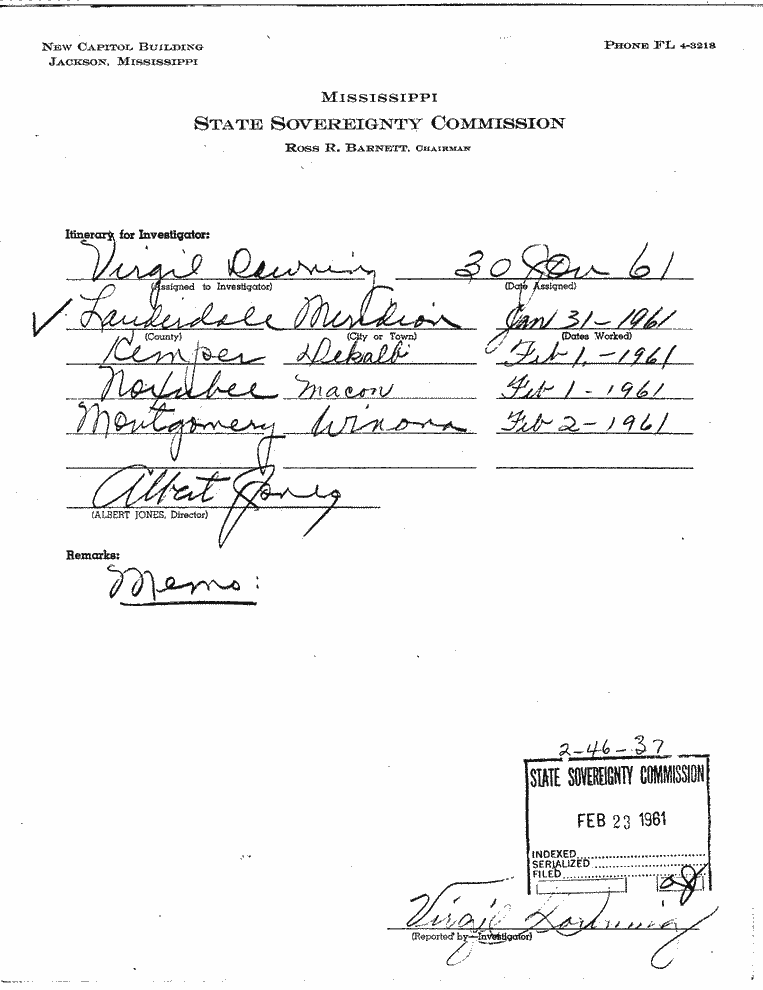 NEW CAPITOL BUILDING
JACKSON, MISSISSIPPI
PHONE FL 4-3218
MISSISSIPPI
STATE SOVEREIGNTY COMMISSION
ROSS R. BARNETT, CHAIRMAN
Itinerary for Investigator:
Virgil Downing 30 Jan 61
(Assigned to Investigator) (Date Assigned)
✓ Lauderdale Meridian Jan 31-1961
(County) (City or Town) (Dates Worked)
Kemper Dekalb Feb 1,-1961
Noxubee Macon Feb 1-1961
Montgomery Winona Feb 2-1961
Albert Jones
(ALBERT JONES, Director)
Remarks:
Memo:
2-46-37
STATE SOVEREIGNTY COMMISSION
FEB 23 1961
INDEXED
SERIALIZED
FILED
Virgil Downing
(Reported by-Investigator)